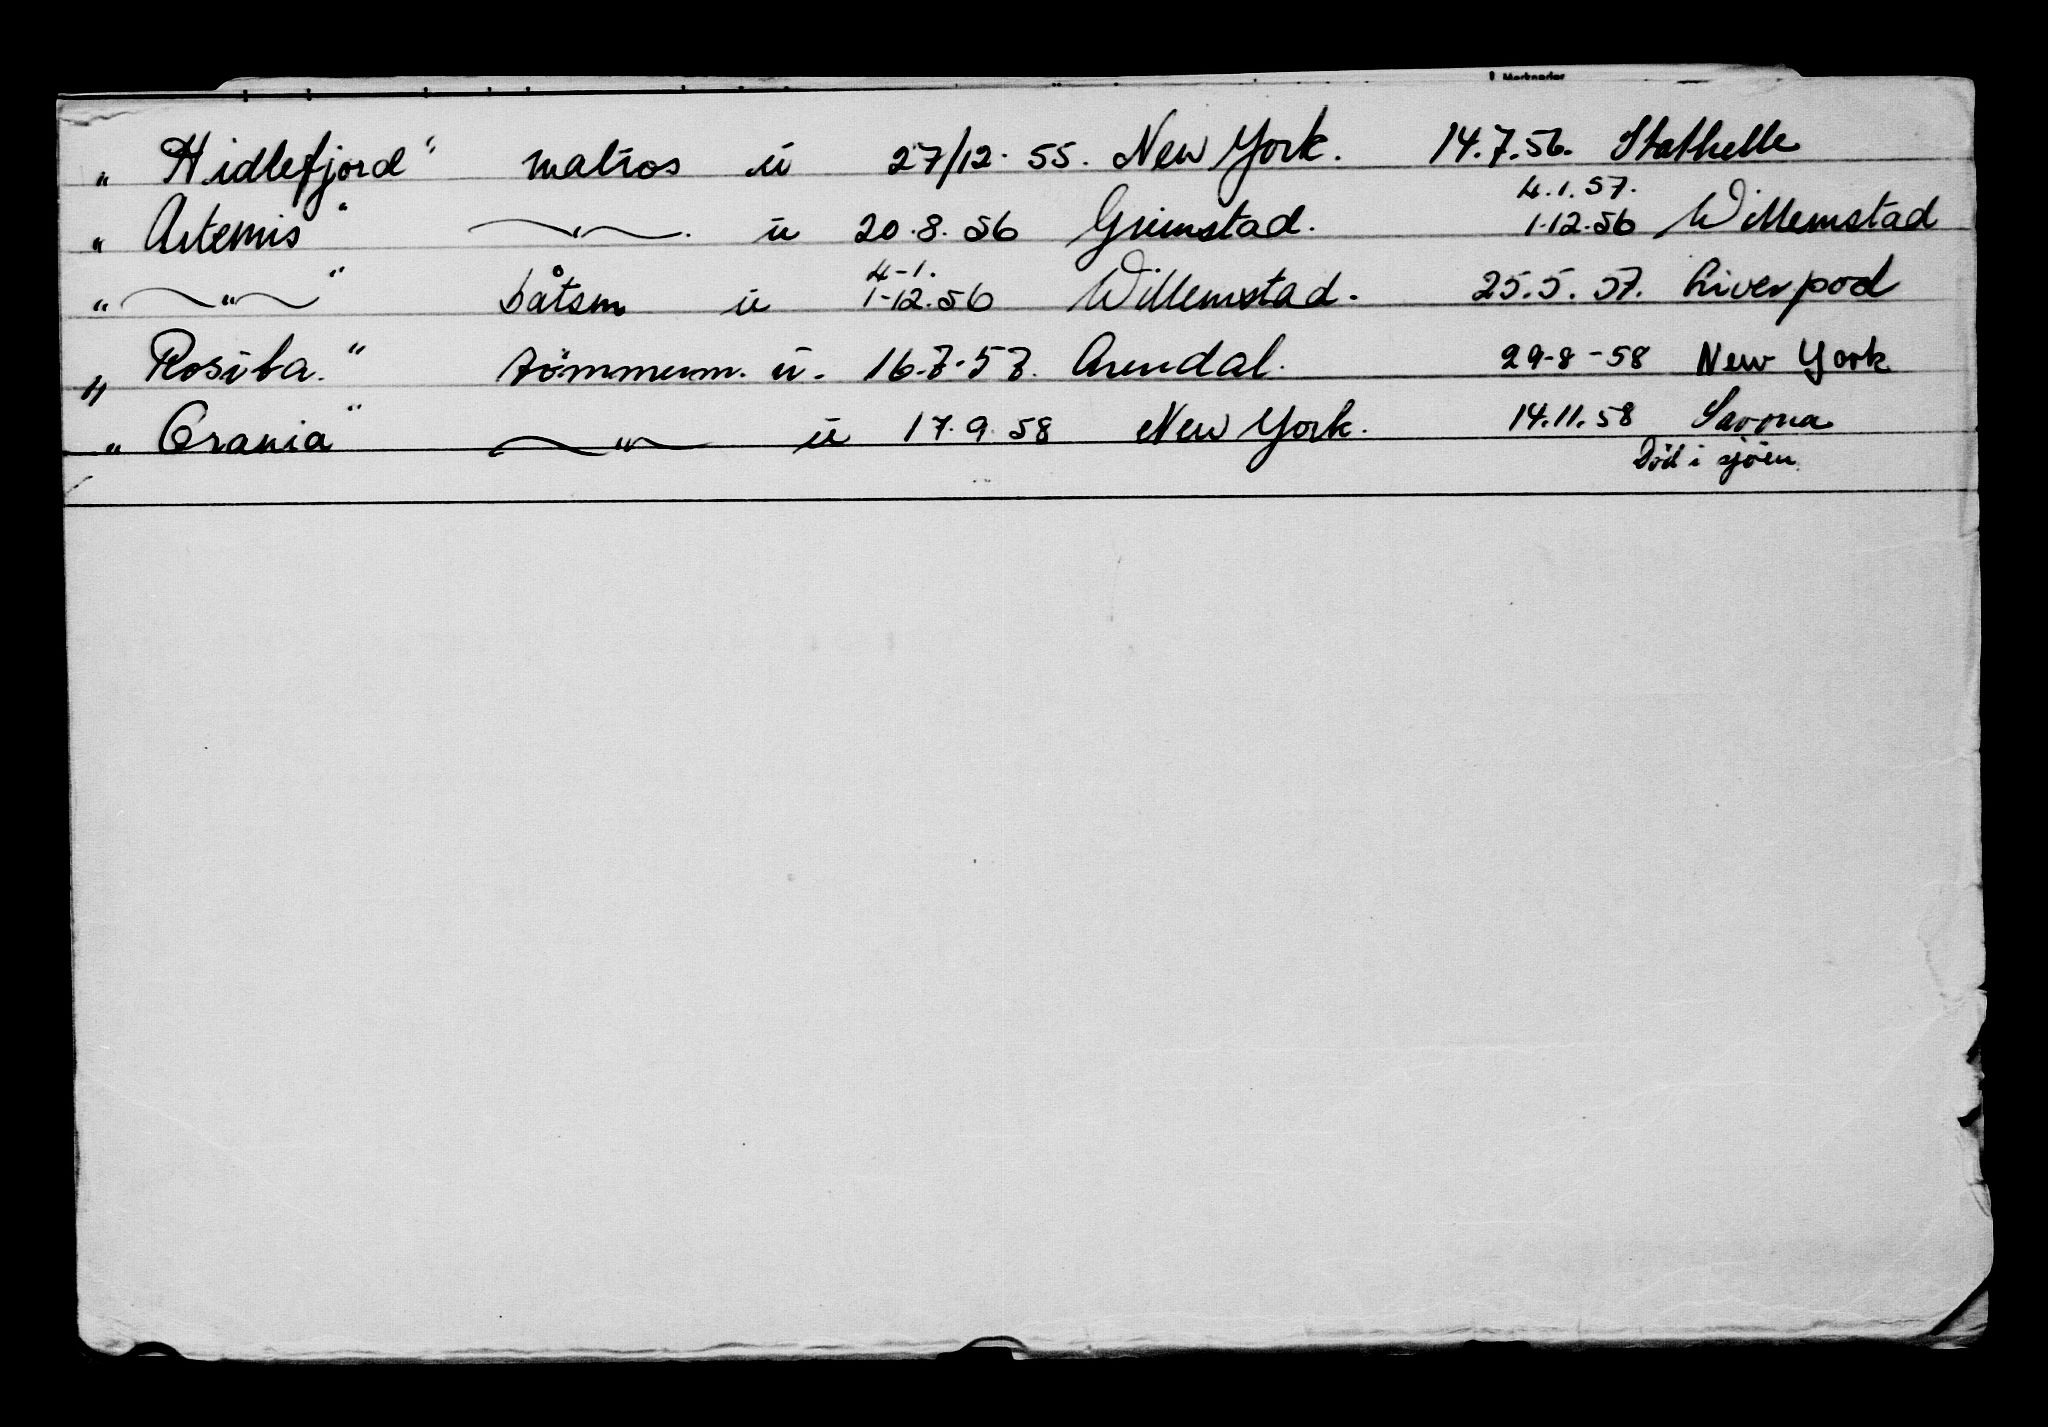 Merknader
„ Hidlefjord" matros ü 27/12. 55. New York. 14.7.56. Stathelle
4.1.57.
„ Artemis" —"— ü 20.8.56 Grimstad. 1.12.56 Willemstad
4-1.
„ —"— " båtsm ü 1-12.56 Willemstad. 25.5.57. Liverpool
„ Rosita." tömmerm. ü. 16.7.57. Arendal. 29-8-58 New York
„ Crania" —"— ü 17.9.58 New York. 14.11.58 Savona
Död i sjöen.